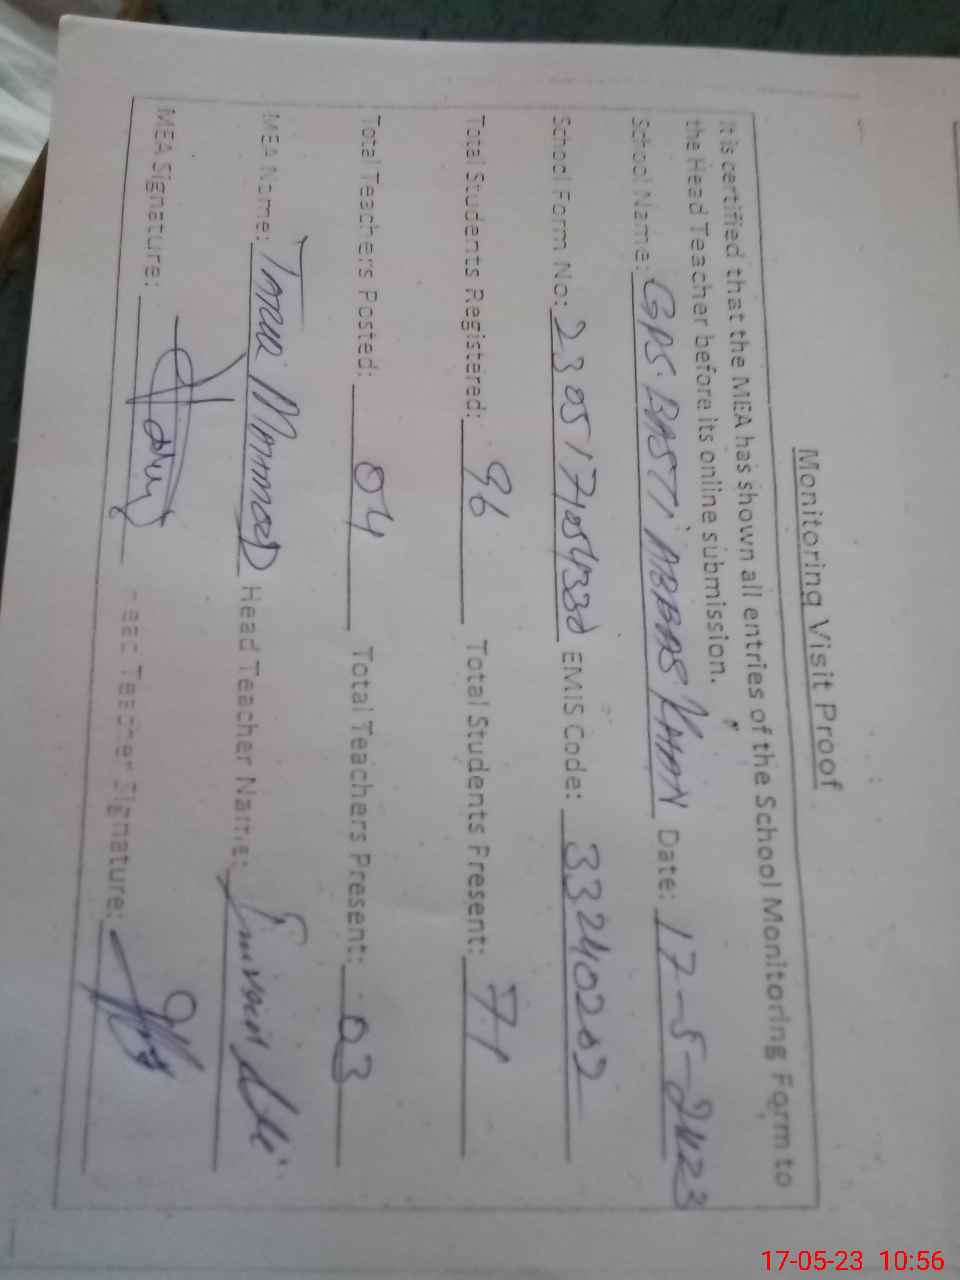 Monitoring Visit Proof
It is certified that the MEA has shown all entries of the School Monitoring Form to
the Head Teacher before its online submission.
School Name: GPS. BASTI ABBAS KHAN Date: 17-5-2023
School Form No: EMIS Code: 33240202
Total Students Registered: 96 Total Students Present: 71
Total Teachers Posted: 04 Total Teachers Present: 03
MEA Name: Head Teacher Name:
MEA Signature: Head Teacher Signature:
17-05-23 10:56